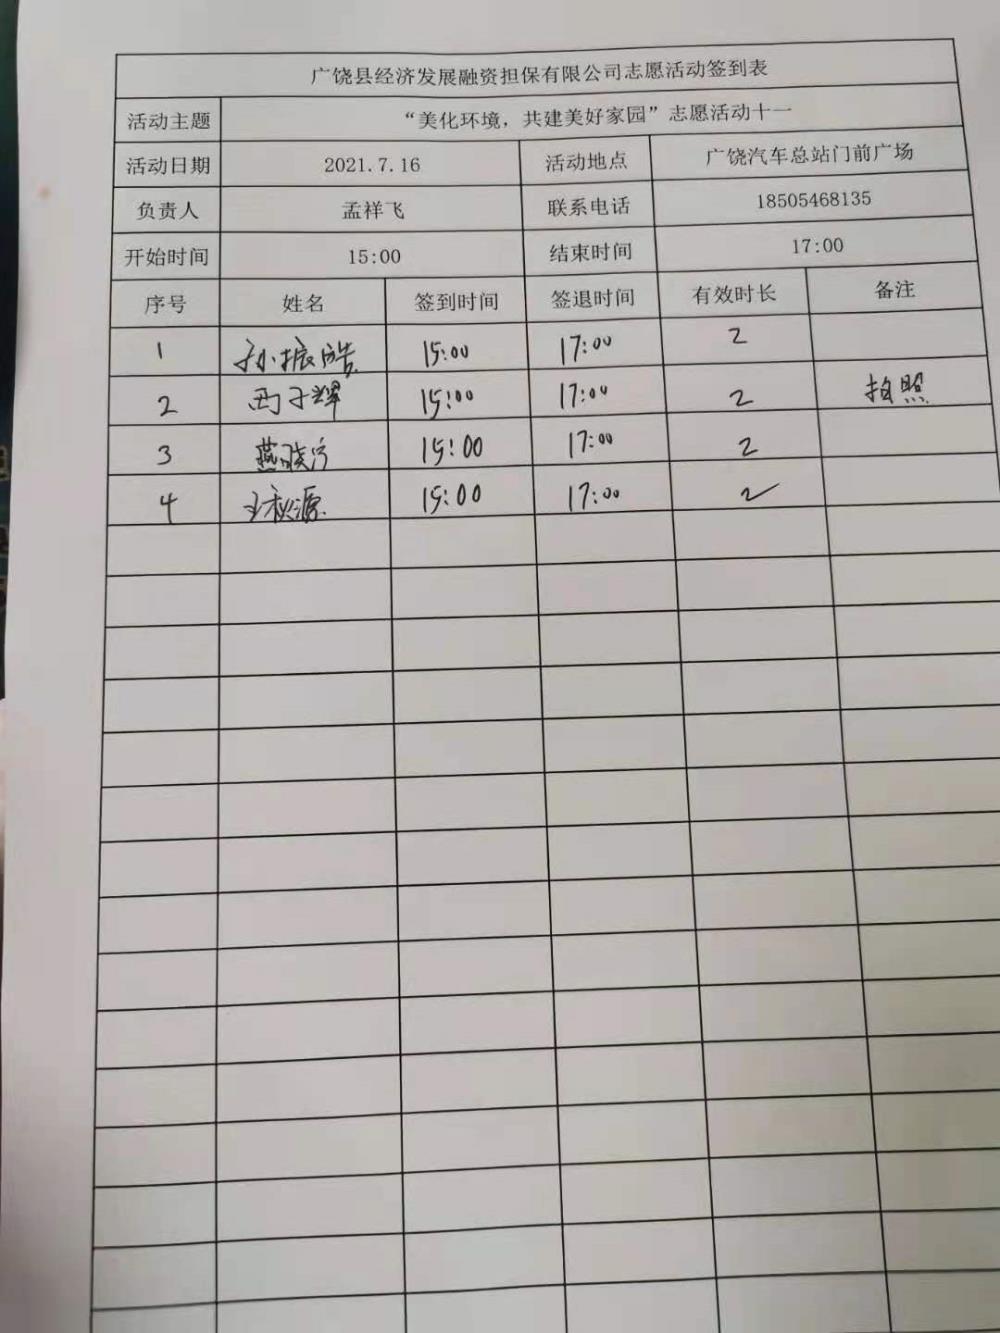 广饶县经济发展融资担保有限公司志愿活动签到表
活动主题 “美化环境，共建美好家园”志愿活动十一
活动日期 2021.7.16 活动地点 广饶汽车总站门前广场
负责人 孟祥飞 联系电话 18505468135
开始时间 15:00 结束时间 17:00
序号 姓名 签到时间 签退时间 有效时长 备注
1 孙振皓 15:00 17:00 2
2 西子辉 15:00 17:00 2 拍照
3 15:00 17:00 2
4 王秋源 15:00 17:00 2